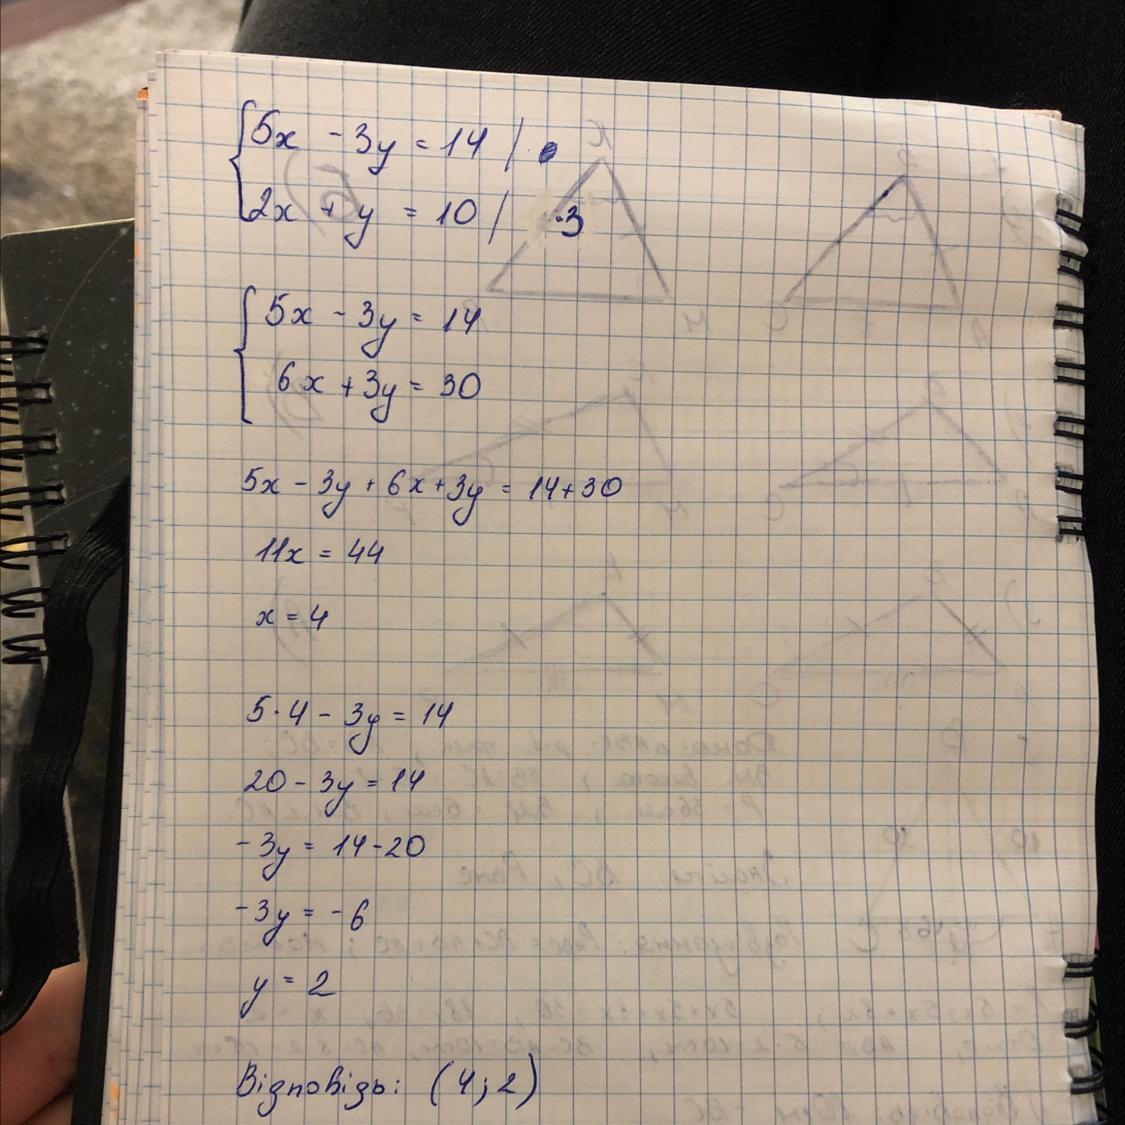 5x - 3y = 14 |
2x + y = 10 | ·3
5x - 3y = 14
6x + 3y = 30
5x - 3y + 6x + 3y = 14+30
11x = 44
x = 4
5·4 - 3y = 14
20 - 3y = 14
-3y = 14-20
-3y = -6
y = 2
Відповідь: (4; 2)